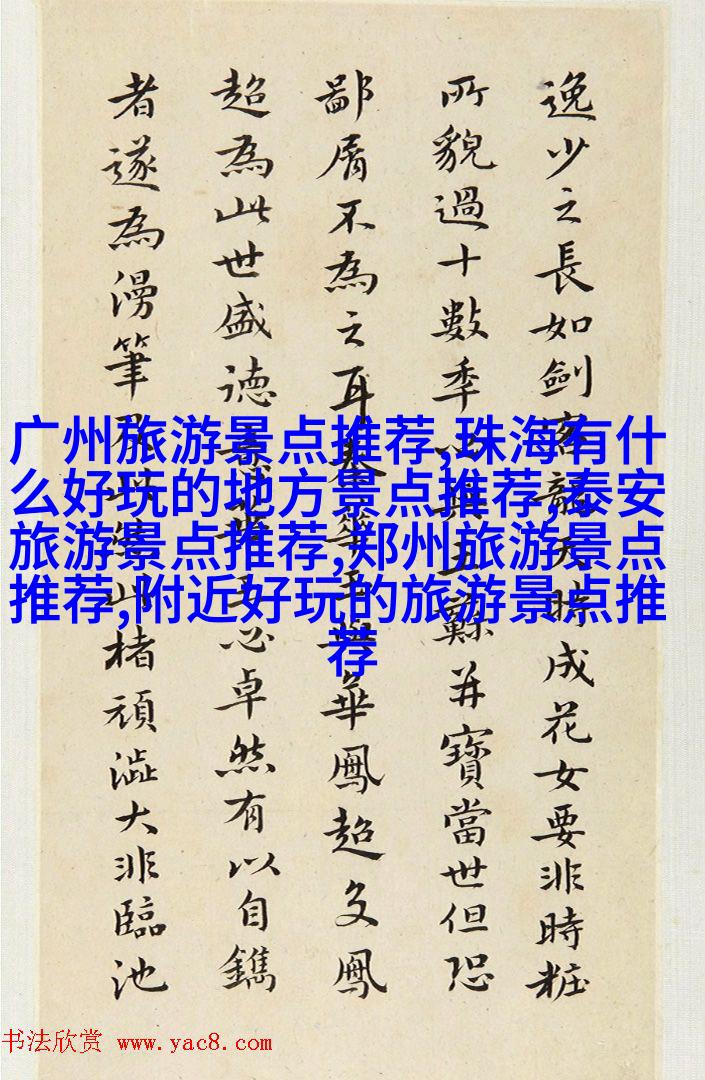 逸少之長如劍客龍天時成花女要非時粧
所貌過十數秊蘇并寶當世但恐
鄙屑不為之耳秦華鳳超文鳳
超為此世盛德心卓然有以自鐫
者遂為漫筆楮頑澁大非臨池
广州旅游景点推荐,珠海有什
么好玩的地方景点推荐,泰安
旅游景点推荐,郑州旅游景点
推荐,附近好玩的旅游景点推
荐
书法欣赏 www.yac8.com